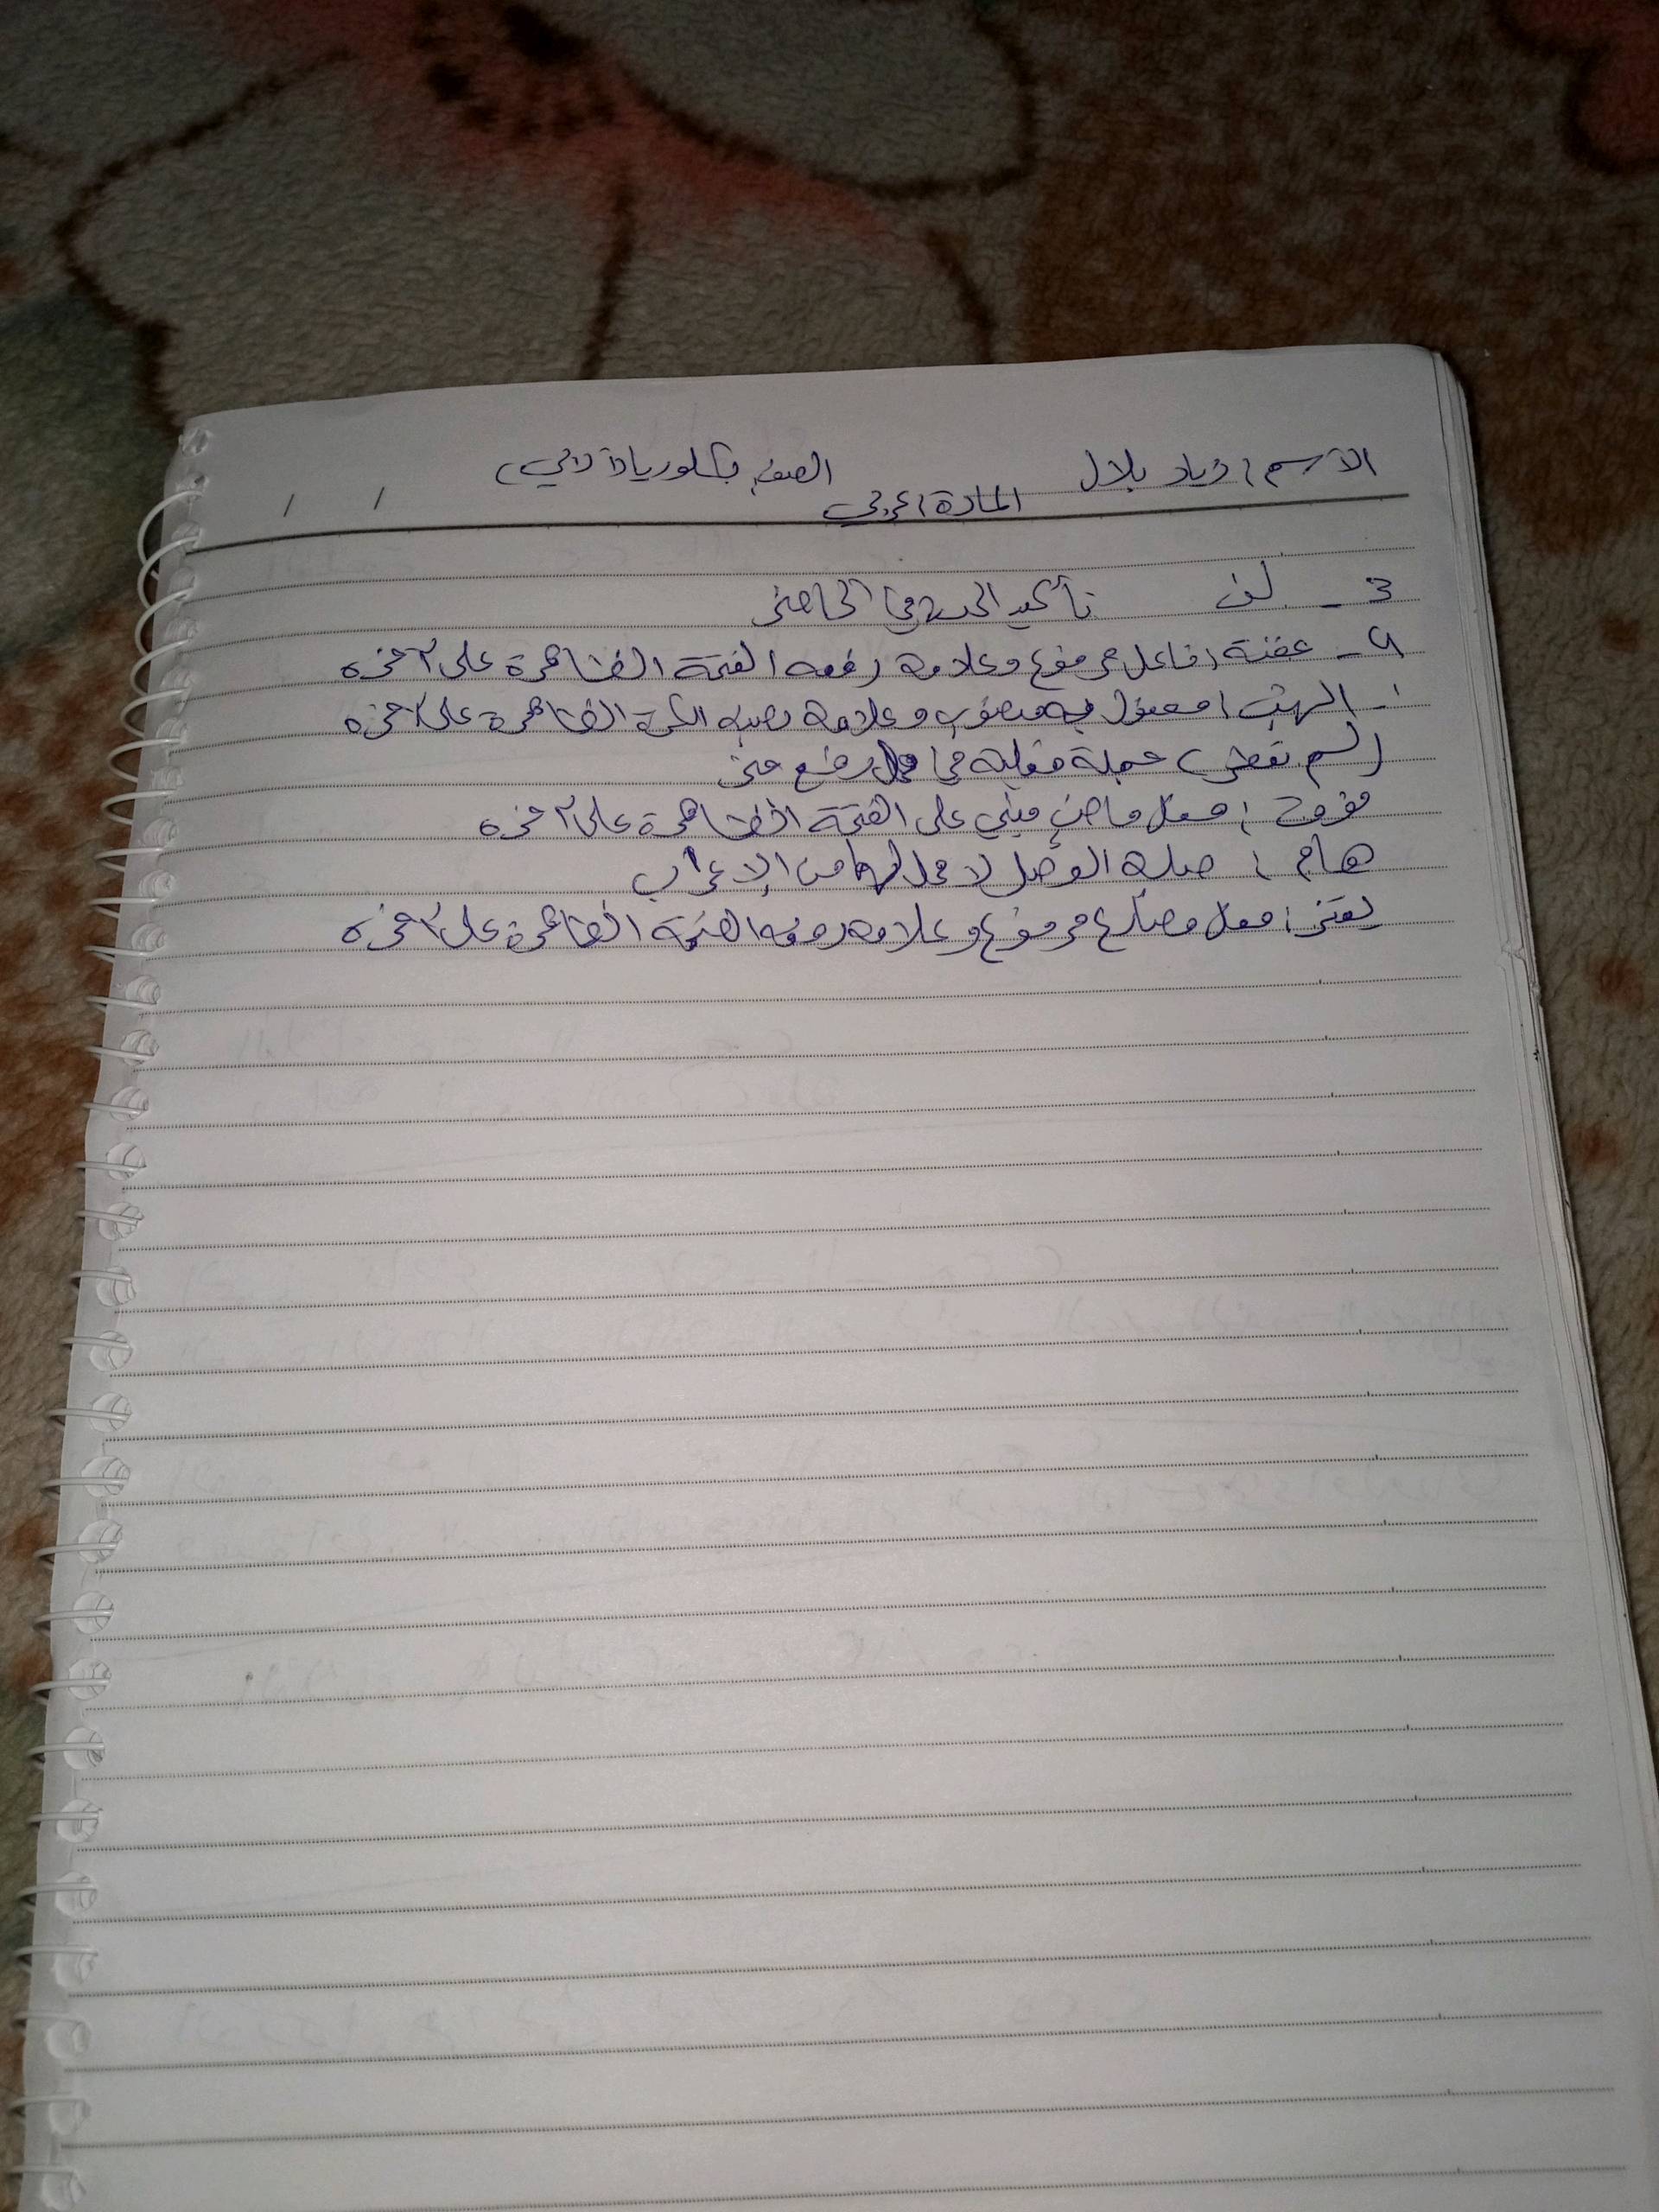 الاسم: زياد بلال الصف: بكلوريا أدبي
المادة: عربي / /
3 - تأكيد الحدث في الماضي
4 - عفنة: فاعل مرفوع وعلامة رفعه الفتحة الظاهرة على آخره
: مفعول به منصوب وعلامة نصبه الظاهرة على آخره
(لم جملة فعلية في محل رفع
: فعل ماض مبني على الفتحة الظاهرة على آخره
هام: صلة الوصل لا محل لها من الإعراب
: فعل مضارع مرفوع وعلامة رفعه الضمة الظاهرة على آخره